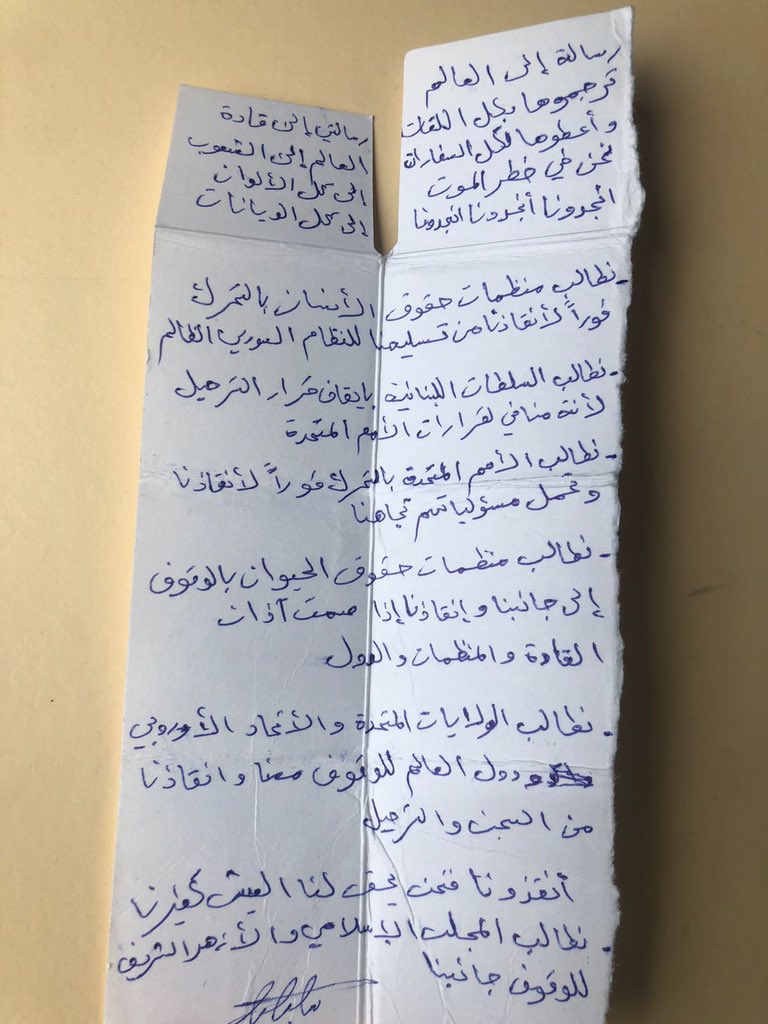 رسالة إلى العالم
ترجموها بكل اللغات
وأعطوها لكل السفارات
نحن في خطر الموت
انجدونا أنجدونا انجدونا
رسالتي إلى قادة
العالم إلى الشعوب
إلى كل الألوان
إلى كل الديانات
- نطالب منظمات حقوق الأنسان بالتحرك
فوراً لأنقاذنا من تسليمنا للنظام السوري الظالم
- نطالب السلطات اللبنانية بايقاف قرار الترحيل
لأنة منافي لقرارات الأمم المتحدة
- نطالب الأمم المتحدة بالتحرك فوراً لأنقاذنا
وتحمل مسؤلياتهم تجاهنا
- نطالب منظمات حقوق الحيوان بالوقوف
إلى جانبنا وإنقاذنا إذا صمت آذان
القادة والمنظمات والدول
- نطالب الولايات المتحدة والأتحاد الأوروبي
ودول العالم للوقوف معنا وانقاذنا
من السجن والترحيل
أنقذونا فنحن يحق لنا العيش كغيرنا
- نطالب المجلس الإسلامي والأزهر الشريف
للوقوف جانبنا